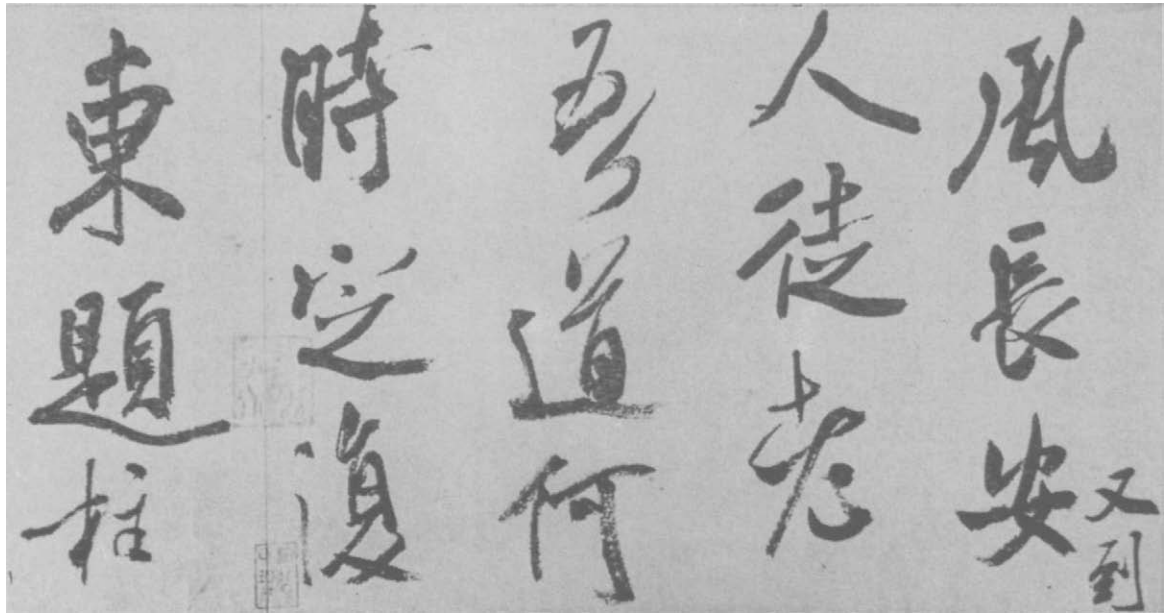 風長安又到
人徒老
吾道何
時定復
東題柱